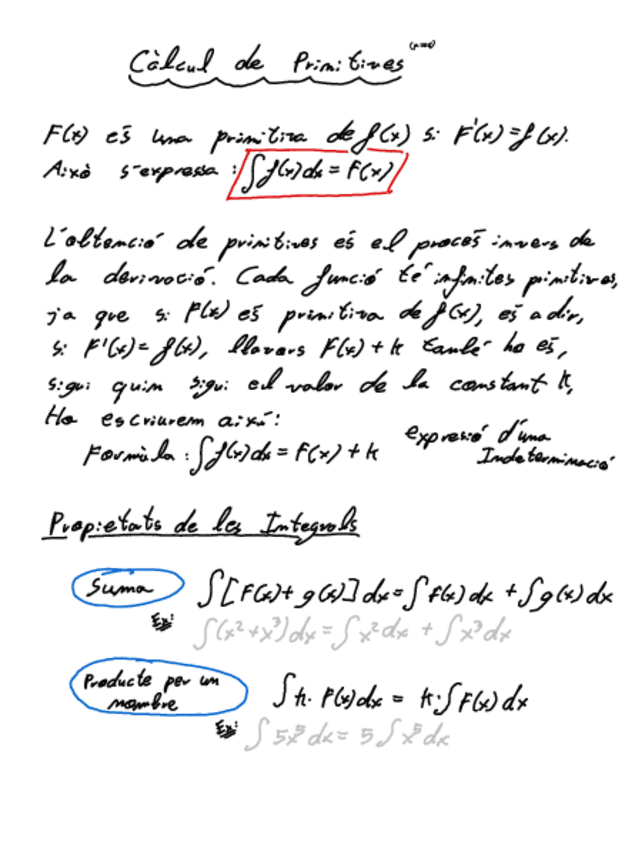 Càlcul de Primitives
F(x) és una primitiva de f(x) si F'(x) = f(x).
Això s'expressa : ∫f(x)dx = F(x)
L'obtenció de primitives és el procés invers de
la derivació. Cada funció té infinites primitives,
ja que si F(x) és primitiva de f(x), és a dir,
si F'(x) = f(x), llavors F(x) + k també ho és,
sigui quin sigui el valor de la constant k,
Ho escriurem així:
Formula : ∫f(x)dx = F(x) + k
expresió d'una
Indeterminació
Propietats de les Integrals
Suma ∫[F(x) + g(x)] dx = ∫f(x) dx + ∫g(x) dx
Ex: ∫(x² + x³)dx = ∫x²dx + ∫x³dx
Producte per un
nombre ∫k · F(x)dx = k · ∫F(x) dx
Ex: ∫5x⁵dx = 5∫x⁵dx